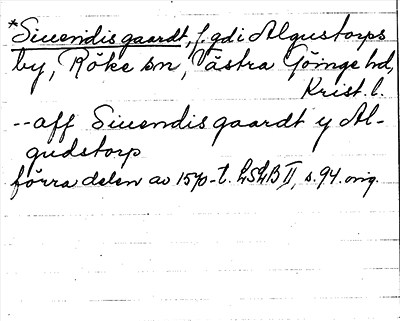 *Siuendis gaardt, f. gd i Algustorps
by, Röke sn, Västra Göinge hd,
Krist. l.
--aff Siuendis gaardt y Al-
gudstorp
förra delen av 1570-t. LSLB II, s. 94. orig.